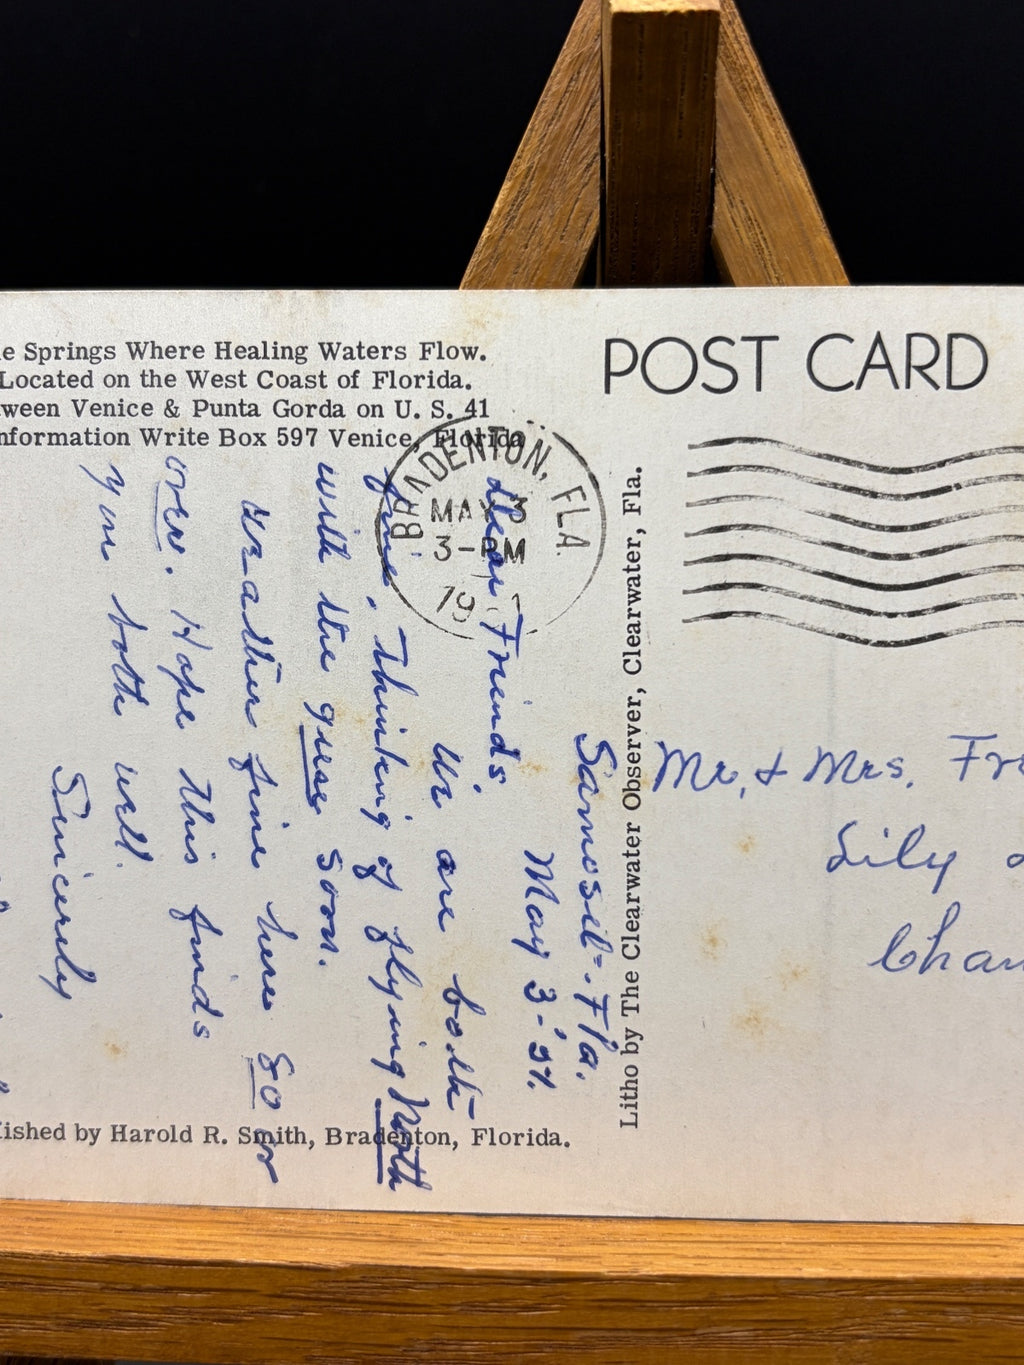 e Springs Where Healing Waters Flow.
Located on the West Coast of Florida.
ween Venice & Punta Gorda on U. S. 41
nformation Write Box 597 Venice, Florida
POST CARD
BRADENTON, FLA.
MAY 3
3-PM
19
Fla.
May 3-'57.
Dear Friends,
We are both
fine. Thinking of flying North
with the geese soon.
Weather fine here 80 or
over. Hope this finds
you both well.
Sincerely
Litho by The Clearwater Observer, Clearwater, Fla.
Mr. & Mrs. Fr
Lily
Chau
ished by Harold R. Smith, Bradenton, Florida.